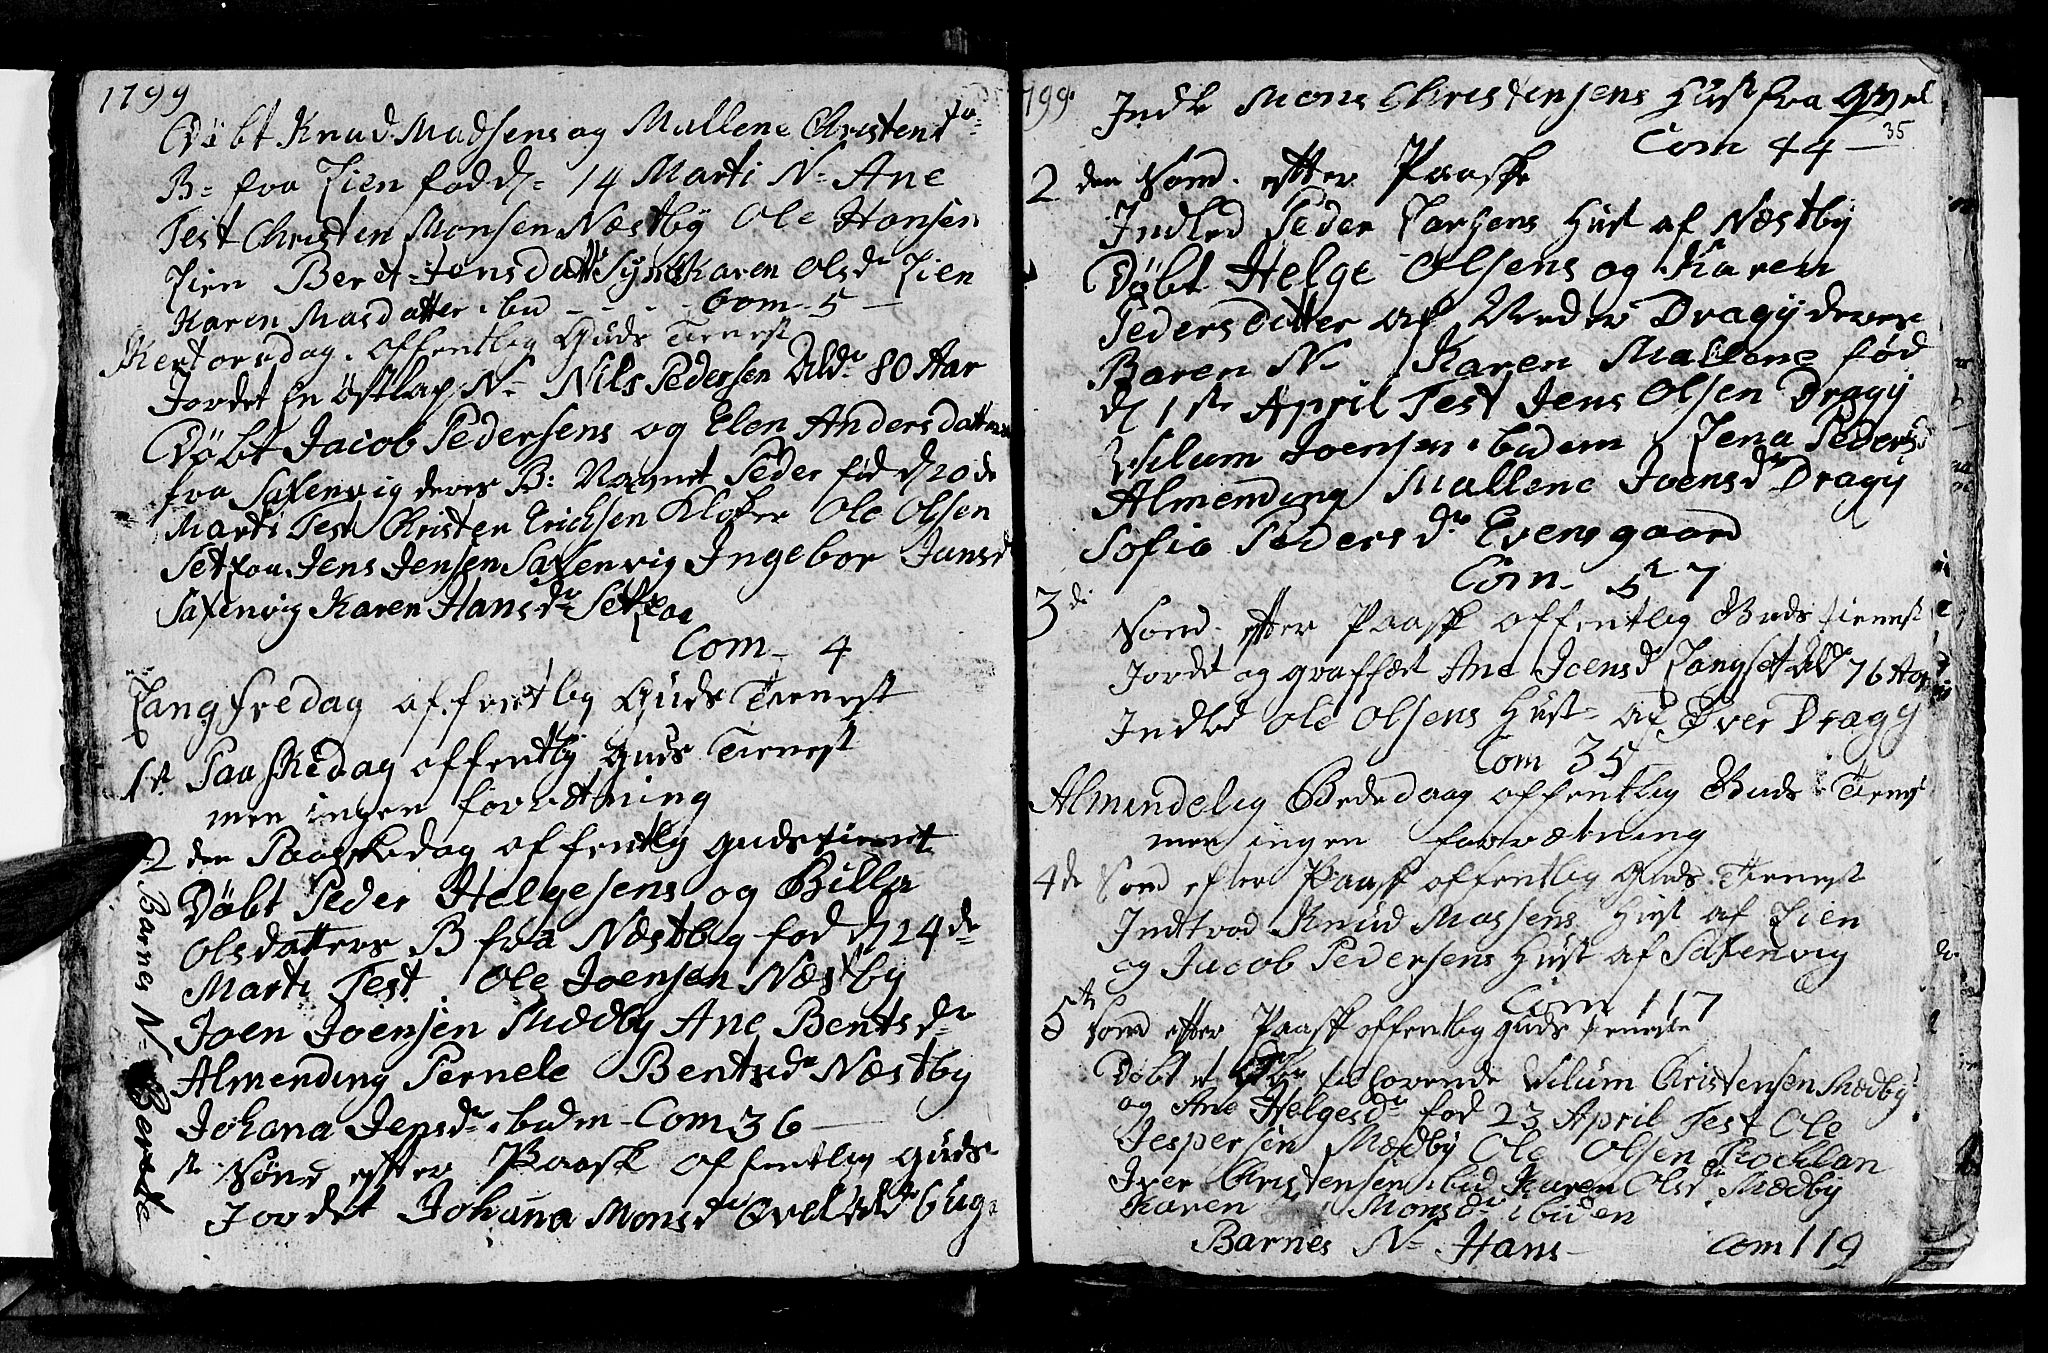 1799
Døbt Knud Madsens og Mallene Christensda
B= fra Lien fød d= 14 Marti N= Ane
Test Christen Monsen Næstby Ole Hansen
Lien Beret Jensdatter Karen Olsdr Lien
Karen Masdatter ibid - - - - Com- 5 -
Skertorsdag offentlig Guds Tienest
Jordet En Østlap N= Nils Pedersen Aldr 80 Aar
Døbt Jacob Pedersens og Elen Andersdatters
fra Saxenvig deres B: Nafnet Peder fød d 20 de
Marti Test Christen Erichsen Kloker Ole Olsen
Setsaa Jens Jensen Saxenvig Ingebor Junsd
Saxenvig Karen Hansdr Setsaa
Com- 4
Langfredag offentlig Guds Tienest
1st Paaskedag offentlig Guds Tienest
men ingen forrætning
2 den Paaskedag offentlig gudstienst
Døbt Peder Helgesens og Billa
Olsdatters B fra Næstby fød d 24 de
Marti Test Ole Joensen Næstby
Joen Joensen Mædby Ane Bentsdr
Almending Pernele Bentsdr Næstby
Johana Jensdr ibidm - Com 36 -
Barnes N= Berede
ste Sønd efter Paask offentlig guds
Jordet Johana Monsdr Qvel Aldr 6 ug
1799. Indle Mons Christensens Hust fra Qvel
35
Com 44 -
2 den Sønd. efter Paaske
Indled Peder Larsens Hust af Næstby
Døbt Helge Olsens og Karen
Pedersdatter af Neder Dragy deres
Baren N= Karen Mallene fød
d 1ste April Test Jens Olsen Dragy
Vilum Joensen ibidem Lena Pedersd
Almending Mallene Joensdr Dragy
Sofia Pedersdr Evensgaard
Com- 57
3 di Sønd. efter Paask offentlig Guds tienest
Jordet og graffæst Ane Joensdr Langset Aldr 76 Aar
Indled Ole Olsens Hust= af Øver Dragy
Com 35
Almindelig Bededaag offentlig Guds Tienest
men ingen forrætning
4 de Sønd efter Paask offentlig Guds Tienest
Indtrad Knud Massens Hust af Lien
og Jacob Pedersens Hust af Saxenvig
Com 117
5 te Sønd efter Paask offentlig guds tieneste
Døbt et forlovende Vilum Christensen Mædby
og Ane Helgesdr fød 23 April Test Ole
Jespersen Mædby Ole Olsen
Iver Christensen ibid Karen Olsdr Mædby
Karen Monsdr ibiden
Barnes N= Hans - Com 119